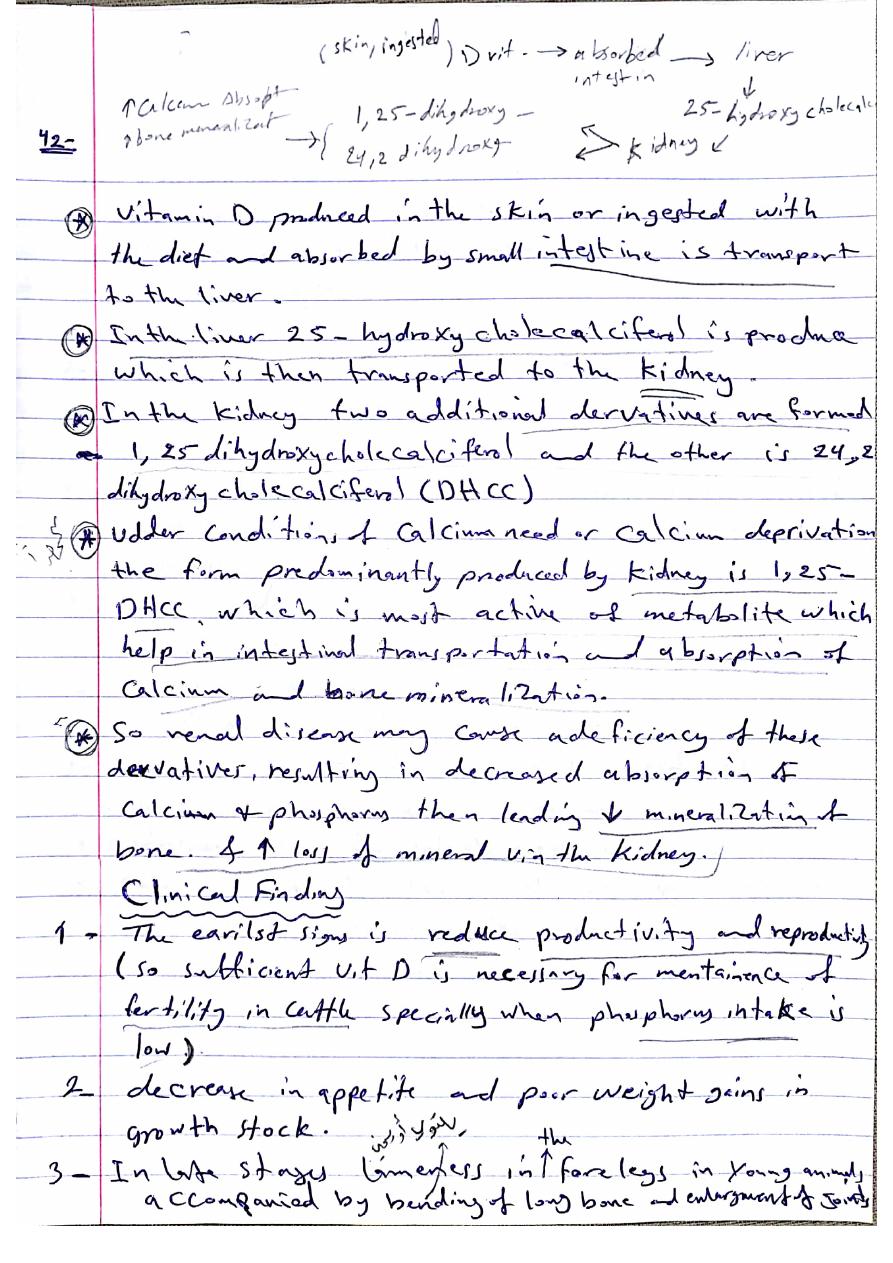 (skin, ingested) D vit. → absorbed → liver
intestin
25-hydroxy cholecal
↑ Calcium Absopt
↑ bone menaralizat → { 1,25-dihydroxy -
24,2 dihydroxy
Kidney
42-
Vitamin D produced in the skin or ingested with
the diet and absorbed by small intestine is transport
to the liver.
In the liver 25-hydroxy cholecalciferol is produc
which is then transported to the kidney.
In the kidney two additional dervatives are formed
- 1,25 dihydroxycholecalciferol and the other is 24,2
dihydroxy cholecalciferol (DHCC)
udder conditions of Calcium need or calcium deprivation
the form predominantly produced by kidney is 1,25-
DHCC, which is most active of metabolite which
help in intestinal transportation and absorption of
Calcium and bone mineralization.
So renal disease may cause a deficiency of these
dervatives, resulting in decreased absorption of
Calcium & phosphorus then leading ↓ mineralization of
bone. & ↑ loss of mineral via the kidney.
Clinical Finding
1- The earilst signs is reduce productivity and reproductivity
(so sufficient vit D is necessary for mentainence of
fertility in cattle specially when phosphorus intake is
low)
2- decrease in appetite and poor weight gains in
growth stock.
3- In late stages lameness in ↑ the fore legs in young animals
accompanied by bending of long bone and enlargment of joints